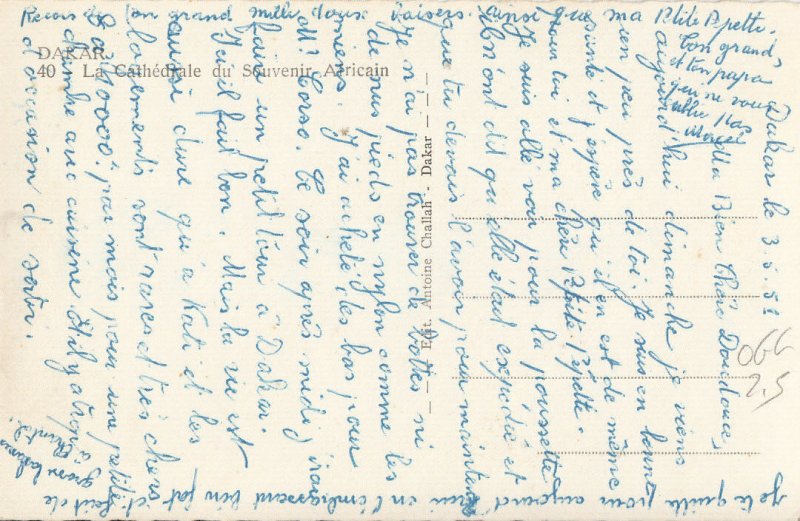 DAKAR
40 - La Cathédrale du Souvenir Africain
Edit. Antoine Challah - Dakar
Dakar le 3.5.52
Ma Bien Chère Doudoue,
aujourd'hui dimanche je viens
un peu près de toi. Je suis en bonne
santé et j'espère qu'il en est de même
pour toi et ma chère Ptite Pépette.
Je suis allé voir pour la poussette
ils m'ont dit qu'elle était expédiée et
que tu devais l'avoir pour maintenant
Je n'ai pas trouvé de bottes ni
de nus pieds en nylon comme les
miens. J'ai acheté des bas pour
Mr Corso. Ce soir après midi j'irais
faire un petit tour à Dakar.
Ici il fait bon. Mais la vie est
aussi dure qu'à Kati et les
logements sont rares et très chers
10000 par mois pour une petite
chambre avec cuisine. Il y a trop
d'occasion de sortir.
Je te quitte pour aujourd'hui en t'embrassant bien fort et
Reçois
mon grand mille doux baisers ainsi que ma Ptite Pépette.
Ton grand
et ton papa
qui ne vous
oublie pas
Marcel
066
2.5